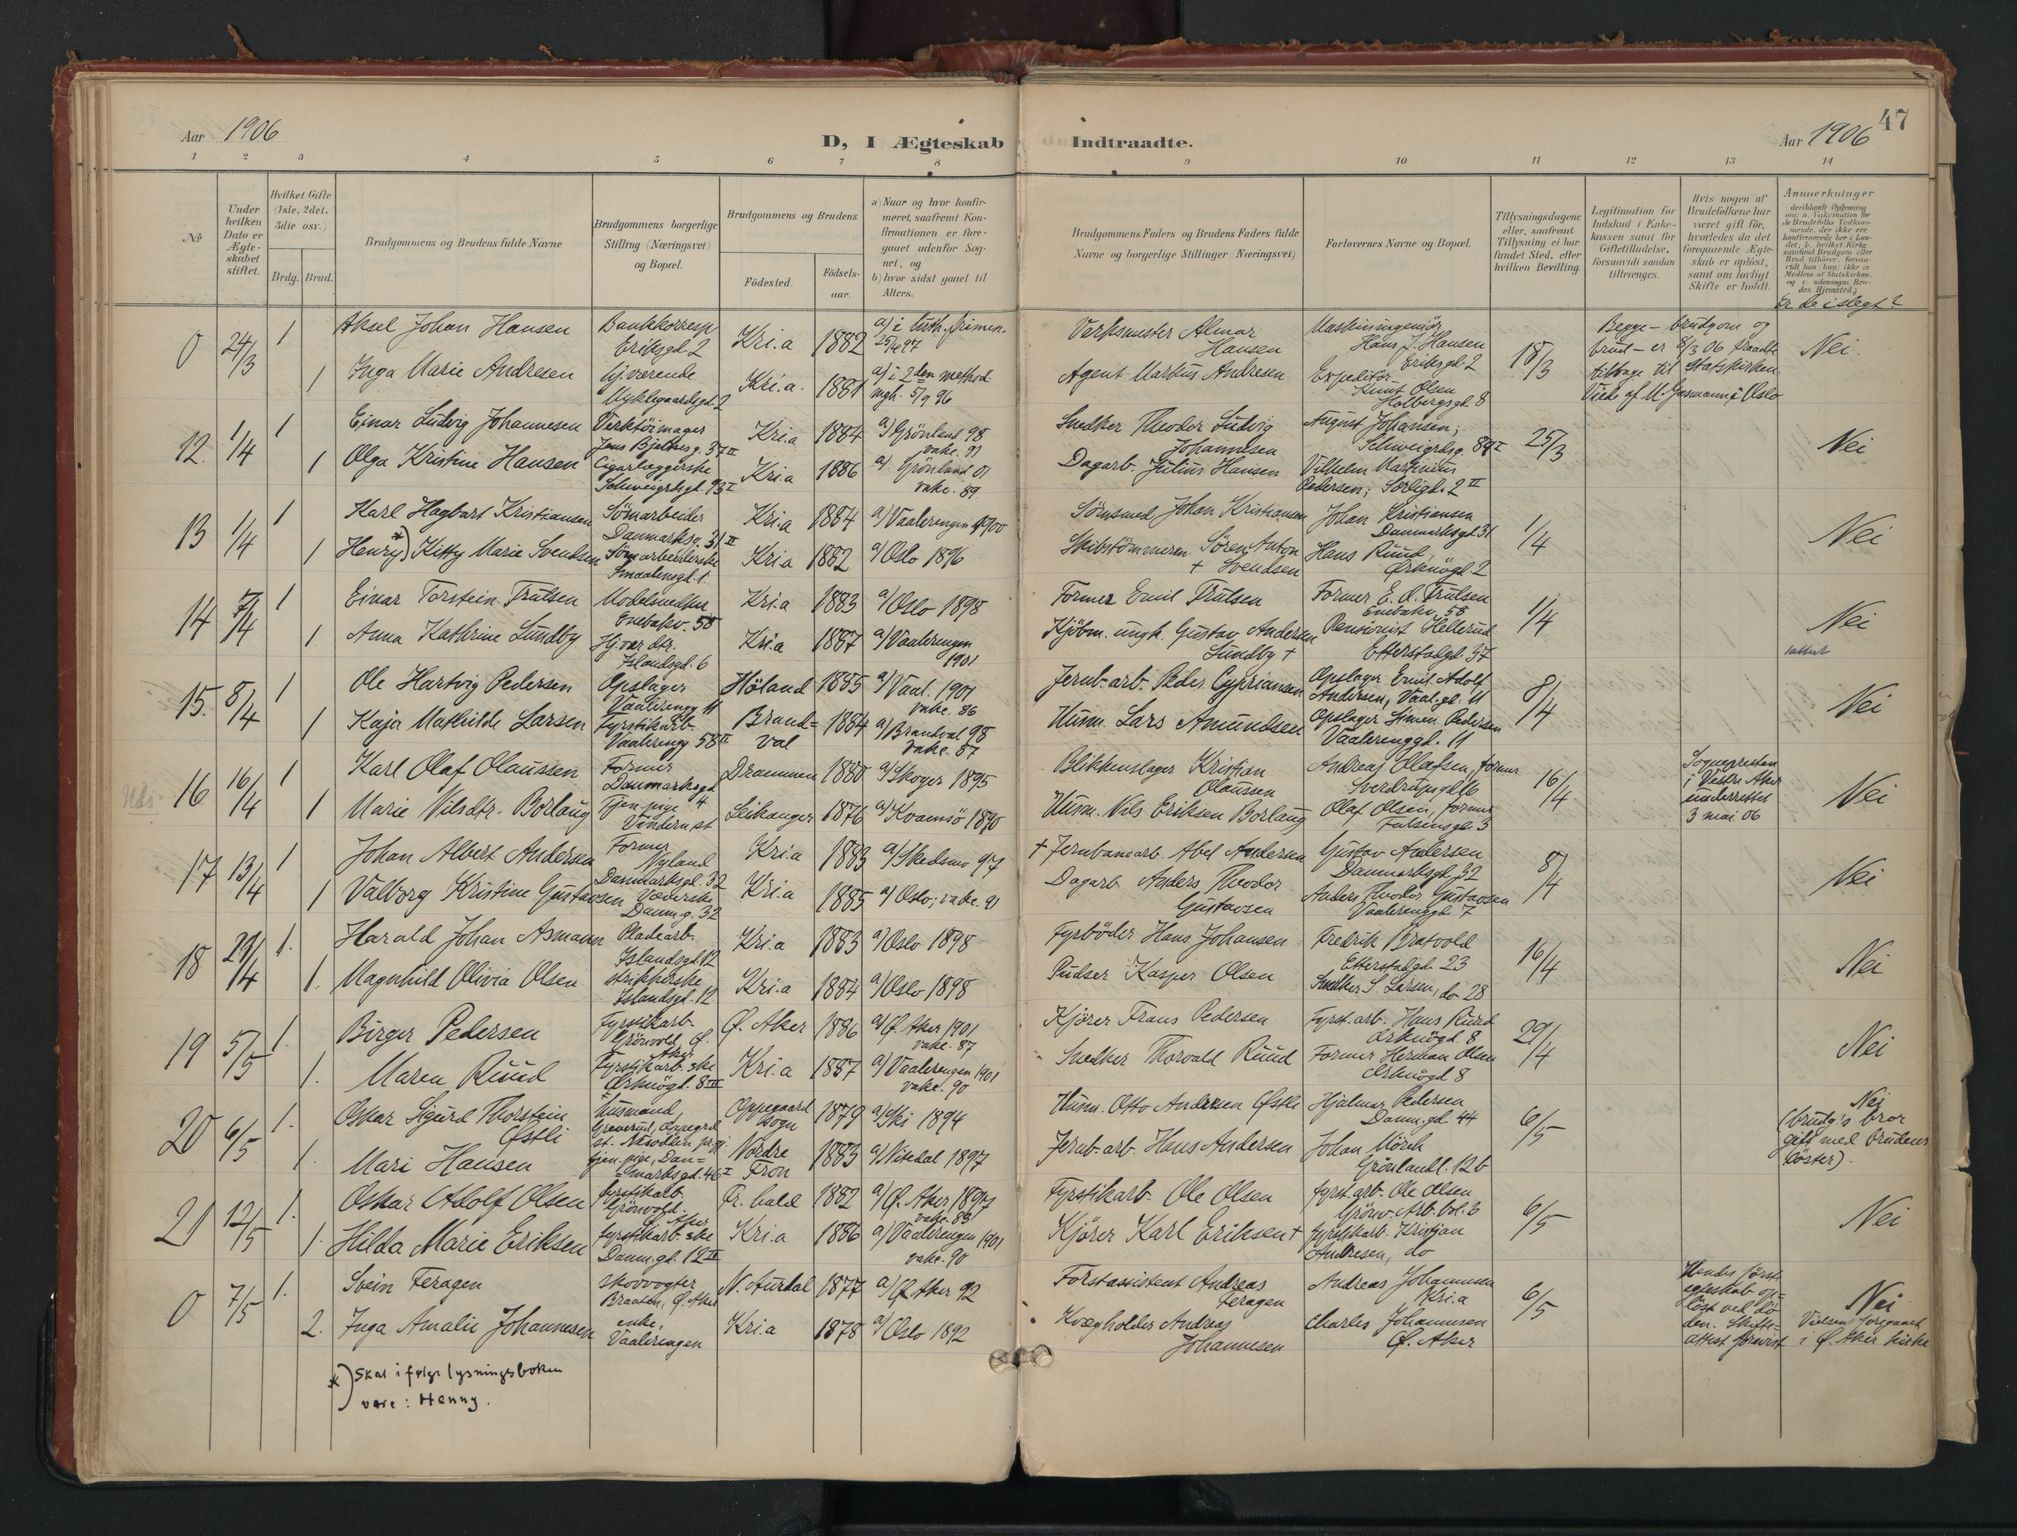 47
Aar 1906
D, I Ægteskab Indtraadte.
Aar 1906
1 2 3 4 5 6 7 8 9 10 11 12 13 14
No
Under hvilken Dato er Ægteskabet stiftet.
Hvilket Gifte (1ste, 2det, 3die osv.)
Brdg. Brud.
Brudgommens og Brudens fulde Navne
Brudgommens borgerlige Stilling (Næringsvei) og Bopæl.
Brudgommens og Brudens
Födested. Födselsaar.
a) Naar og hvor konfirmeret, saafremt Konfirmationen er foregaaet udenfor Sognet, og
b) hvor sidst gaaet til Alters.
Brudgommens Faders og Brudens Faders fulde Navne og borgerlige Stillinger Næringsvei)
Forlovernes Navne og Bopæl.
Tillysningsdagene eller, saafremt Tillysning ei har fundet Sted, efter hvilken Bevilling.
Legitimation for Indskud i Enkekassen samt for Giftetilladelse, forsaavidt saadan tiltrænges.
Hvis nogen af Brudefolkene har været gift för, hvorledes da det foregaaende Ægteskab er oplöst, samt om lovligt Skifte er holdt.
Anmerkninger
Er de i slegt?
0 24/3 1 Aksel Johan Hansen Bankkorresp Eriksgd 2 Kri.a 1882 a) i luth. frimen. 25/4 97 Verksmester Almar Hansen Maskiningeniör Hans J. Hansen Eriksgd 2 18/3 Begge - brudgom og brud - er 8/3 06 traadt tilbage til Statskirken. Nei.
1 Inga Marie Andresen hj.værende Nyklegaardsgd 2 Kri.a. 1881 a) i 2den method mgh. 5/9 96 Agent Markus Andresen Expeditör Knut Olsen Holbergsgd 8 Viede af M. Gasmann i Oslo
12. 1/4 1 Einar Ludvig Johannesen Verktöimager Jens Bjelkesg. 37 II Kri.a 1884 a) Grönland 98 vakc. 91 Snedker Theodor Ludvig Johannesen August Johansen; Schweigrdsg. 89 I 25/3 Nei
1 Olga Kristine Hansen Cigarlæggerske Schweigrdsgd. 73 I Kri.a 1886 a) Grönland 01 vakc. 89 Dagarb. Julius Hansen Vilhelm Martinius Pedersen; Sorligd. 2 II
13 1/4 1 Karl Hagbart Kristiansen Sömarbeider Danmarksg. 31 II Kri.a 1884 a) Vaalerengen 1900 Sömsmed Johan Kristiansen Johan Kristiansen Danmarksgd 31 1/4 Nei
1 Henry*) Kitty Marie Svendsen Sömarbeiderske Smaalensgd. 1 Kri.a 1882 a) Oslo 1896 Skibstömmerm. Sören Anton Svendsen + Hans Ruud, Örknögd 2
14 7/4 1 Einar Torstein Trulsen Modelsnedker, Enebakv. 58 Kri.a 1883 a) Oslo 1898 Former Emil Trulsen Former E. A. Trulsen Enebakv. 58 1/4 Nei
1 Anna Kathrine Lundby Hj.vær dtr. Islandsgd. 6 Kri.a 1887 a) Vaalerengen 1901 Kjöbm. ungk. Gustav Andersen Lundby + Pensionist Hellerud Etterstadgd. 37
15. 8/4 1 Ole Hartvig Pedersen Opslager Vaalerengg 11 Höland 1885 a) Vaal. 1901 vakc. 86 Jernb.arb. Peder Cypriansen Opslager Emil Adolf Andersen, Vaal.gd. 11 8/4 Nei
1 Kaja Mathilde Larsen Fyrstikarb. Vaalerengg 58 II Brandval 1884 a) Brandval 98 vakc. 87 Husm. Lars Amundsen Opslager Simen Pedersen Vaalerenggd. 11
16 16/4 1 Karl Olaf Olaussen Former Danmarksgd Drammen 1880 a) Skoger 1895 Blikkenslager Kristian Olaussen Andreas Olafsen, former Sverdrupsgd 16 16/4 Sognepresten i Vestre Aker underrettet 3 mai 06 Nei
1 Marie Nilsdtr. Borlaug Tjen.pige 4 Vindern st Leikanger 1876 a) Kvamsö 1890 Husm. Nils Eriksen Borlaug Olaf Olsen, former
17 13/4 1 Johan Albert Andersen Former Nyland Danmarksgd. 32 Kri.a 1883 a) Skedsmo 97 + Jernbanearb. Abel Andersen Gustav Andersen Danmarksgd 32 8/4 Nei
1 Valborg Kristine Gustavsen Væverske Danm.g. 32 Kri.a 1885 a) Oslo; vakc. 91 Dagarb Anders Theodor Gustavsen Anders Theodor Gustavsen Vaalerenggd. 7
18 29/4 1. Harald Johan Asmann Pladearb. Islandsgd. 12 Kri.a 1883 a) Oslo 1898 Fyrböder Hans Johansen Fredrik Bratvold Etterstadgd. 23 16/4 Nei
1. Magnhild Olivia Olsen strikkerske Islandsgd. 12 Kri.a 1884 a) Oslo 1898 Pudser Kasper Olsen Snedker S. Larsen, do 28
19 5/5 1. Birger Pedersen Fyrstikarb. Grönvold, Ø. Aker Ø. Aker 1886 a) Ø. Aker 1901 vakc. 87 Kjörer Frans Pedersen Fyrst.arb. Hans Ruud Örknögd 8 29/4 Nei
1. Maren Ruud Fyrstikarb.ske Örknögd. 8 III Kri.a 1887 a) Vaalerengen 1901 vakc. 90 Snedker Thorvald Ruud Former Herman Olsen Örknögd 8
20 6/5 1. Oskar Sigurd Thorstein Østli Husmand, Greverud, Oppegrd st. Næsodden prgj Oppegaard sogn 1879 a) Ski 1894 Husm. Otto Andersen Østli Hjalmar Pedersen Danm.gd. 44 6/5 Nei (brudg's bror gift med brudens söster).
1. Mari Hansen tjen.pige, Danmarksgd. 46 I Nordre Fron 1883 a) Nitedal 1897 Jernb.arb. Hans Andersen Johan Mörch Grönlandl. 12b
21 12/5 1. Oskar Adolf Olsen fyrstikarb. Grönvold. Ø. Aker Fr.hald 1882 a) Ø. Aker 1897 vakc. 83 Fyrstikarb. Ole Olsen fyrst.arb. Ole Olsen Grönv. Arb.bol. 6 6/5 Nei
1. Hilda Marie Eriksen fyrstikarb.ske Danm.gd. 12 II Kri.a 1886 a) Vaalerengen 1901 vakc. 90 Kjörer Karl Eriksen + fyrstikarb. Kristian Andresen, do
0 7/5 1. Svein Feragen skovvogter Braaten, Ø. Aker N. Aurdal 1877 a) Ø. Aker 92 Forstassistent Andreas Feragen Andreas Johannesen Kri.a 6/5 Hendes förste egteskab oplöst ved döden. Skifteattest forevist Nei Vielsen foregaaet i Ø. Aker kirke
2. Inga Amalie Johannesen enke, Vaalerengen Kri.a 1878. a) Oslo 1892 Kvægholder Andreas Johannesen Charles Johannesen Ø. Aker
*) Skal i følge lysningsboken
være: Henny.